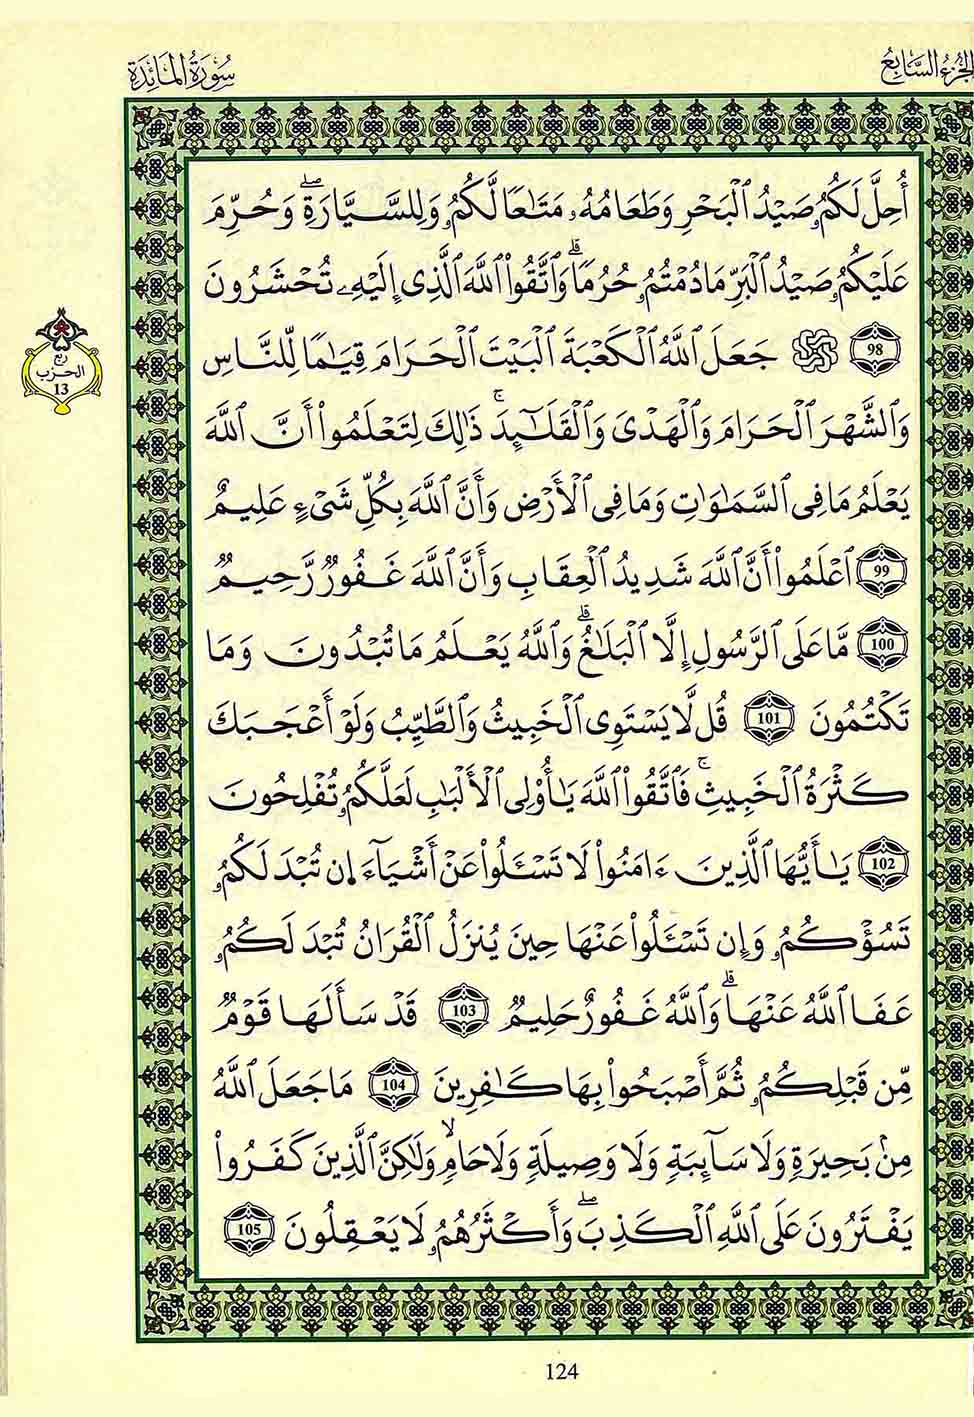 الجزء السابع
سُورَةُ المَائِدَةِ
أُحِلَّ لَكُمُۥ صَيْدُ اُ۬لْبَحْرِ وَطَعَامُهُۥ مَتَٰعاٗ لَّكُمُۥ وَلِلسَّيَّارَةِۖ وَحُرِّمَ
عَلَيْكُمُۥ صَيْدُ اُ۬لْبَرِّ مَا دُمْتُمُۥ حُرُماٗۗ وَاَتَّقُواْ اُ۬للَّهَ اَ۬لَّذِى إِلَيْهِۦ تُحْشَرُونَ
98 جَعَلَ اَ۬للَّهُ اُ۬لْكَعْبَةَ اَ۬لْبَيْتَ اَ۬لْحَرَامَ قِيَٰماٗ لِّلنَّاسِ
وَالشَّهْرَ اَ۬لْحَرَامَ وَالْهَدْىَ وَالْقَلَٰٓئِدَۚ ذَٰلِكَ لِتَعْلَمُواْ أَنَّ اَ۬للَّهَ
يَعْلَمُ مَا فِى اِ۬لسَّمَٰوَٰتِ وَمَا فِى اِ۬لْأَرْضِ وَأَنَّ اَ۬للَّهَ بِكُلِّ شَىْءٍ عَلِيمٌ
99 اَ۪عْلَمُواْ أَنَّ اَ۬للَّهَ شَدِيدُ اُ۬لْعِقَابِ وَأَنَّ اَ۬للَّهَ غَفُورٞ رَّحِيمٞ
100 مَّا عَلَى اَ۬لرَّسُولِ إِلَّا اَ۬لْبَلَٰغُۗ وَاللَّهُ يَعْلَمُ مَا تُبْدُونَ وَمَا
تَكْتُمُونَ 101 قُل لَّا يَسْتَوِى اِ۬لْخَبِيثُ وَالطَّيِّبُ وَلَوْ أَعْجَبَكَ
كَثْرَةُ اُ۬لْخَبِيثِۚ فَاتَّقُواْ اُ۬للَّهَ يَٰأُوْلِى اِ۬لْأَلْبَٰبِ لَعَلَّكُمُۥ تُفْلِحُونَ
102 يَٰأَيُّهَا اَ۬لَّذِينَ ءَامَنُواْ لَا تَسْـَٔلُواْ عَنْ أَشْيَآءَ ا۪ن تُبْدَ لَكُمُۥ
تَسُؤْكُمُۥ وَإِن تَسْـَٔلُواْ عَنْهَا حِينَ يُنزَلُ اُ۬لْقُرَانُ تُبْدَ لَكُمُۥ
عَفَا اَ۬للَّهُ عَنْهَاۗ وَاللَّهُ غَفُورٌ حَلِيمٞ 103 قَدْ سَأَلَهَا قَوْمٞ
مِّن قَبْلِكُمُۥ ثُمَّ أَصْبَحُواْ بِهَا كَٰفِرِينَ 104 مَا جَعَلَ اَ۬للَّهُ
مِنۢ بَحِيرَةٖ وَلَا سَآئِبَةٖ وَلَا وَصِيلَةٖ وَلَا حَامٖۙ وَلَٰكِنَّ اَ۬لَّذِينَ كَفَرُواْ
يَفْتَرُونَ عَلَى اَ۬للَّهِ اِ۬لْكَذِبَۖ وَأَكْثَرُهُمُۥ لَا يَعْقِلُونَ 105
ربع
الحزب
13
124